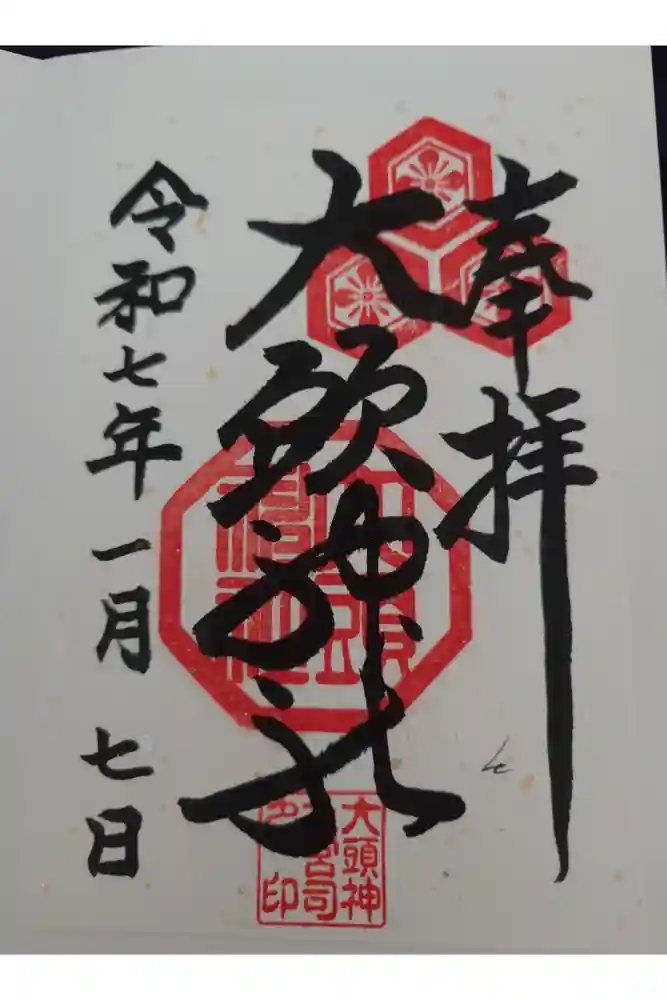 奉拝
大頭神社
令和七年一月七日
大頭神
宮司
印